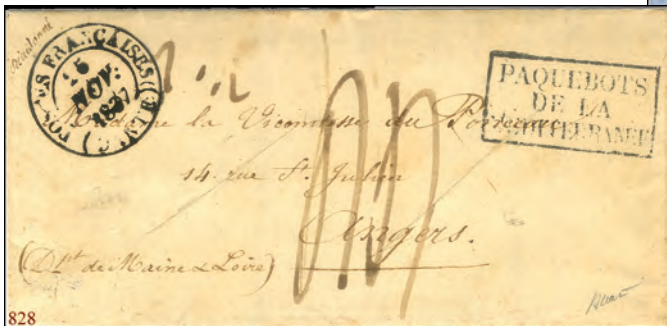 POSTES FRANÇAISES
5
NOV.
1837
PAQUEBOTS
DE LA
MÉDITERRANÉE
Madame la Vicomtesse du
14 rue St. Julien
Angers.
(Dpt de Maine & Loire)
828